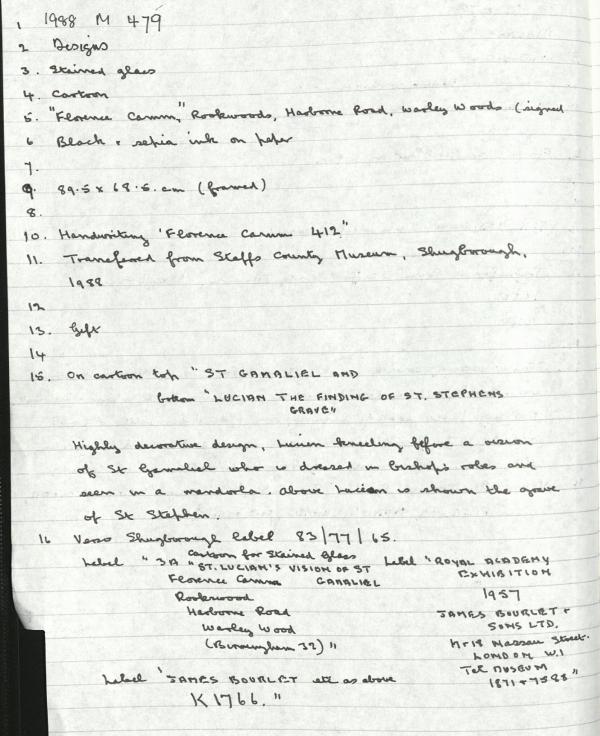 1 1988 M 479
2 Designs
3. Stained glass
4. Cartoon
5. "Florence Camm," Rookwoods, Harborne Road, Warley Woods (signed
6 Black & sepia ink on paper
7.
9. 89.5 x 68.5. cm (framed)
8.
10. Handwriting 'Florence Camm 412"
11. Transferred from Staffs County Museum, Shugborough,
1988
12
13. Gift
14
15. On cartoon top "ST GAMALIEL AND
bottom "LUCIAN THE FINDING OF ST. STEPHENS
GRAVE"
Highly decorative design, Lucien kneeling before a vision
of St Gamaliel who is dressed in bishops robes and
seen in a mandorla. Above Lucien is shown the grave
of St Stephen.
16 Verso Shugborough label 83/77/65.
Label "3A "Cartoon for Stained Glass
"ST. LUCIAN'S VISION OF ST
GAMALIEL
Florence Camm
Rookwood
Harborne Road
Warley Wood
(Birmingham 32)"
Label "ROYAL ACADEMY
EXHIBITION
1957
JAMES BOURLET &
SONS LTD.
17 & 18 Nassau Street.
LONDON W.1
Tel MUSEUM
1871 & 7588"
Label "JAMES BOURLET etc as above
K1766."